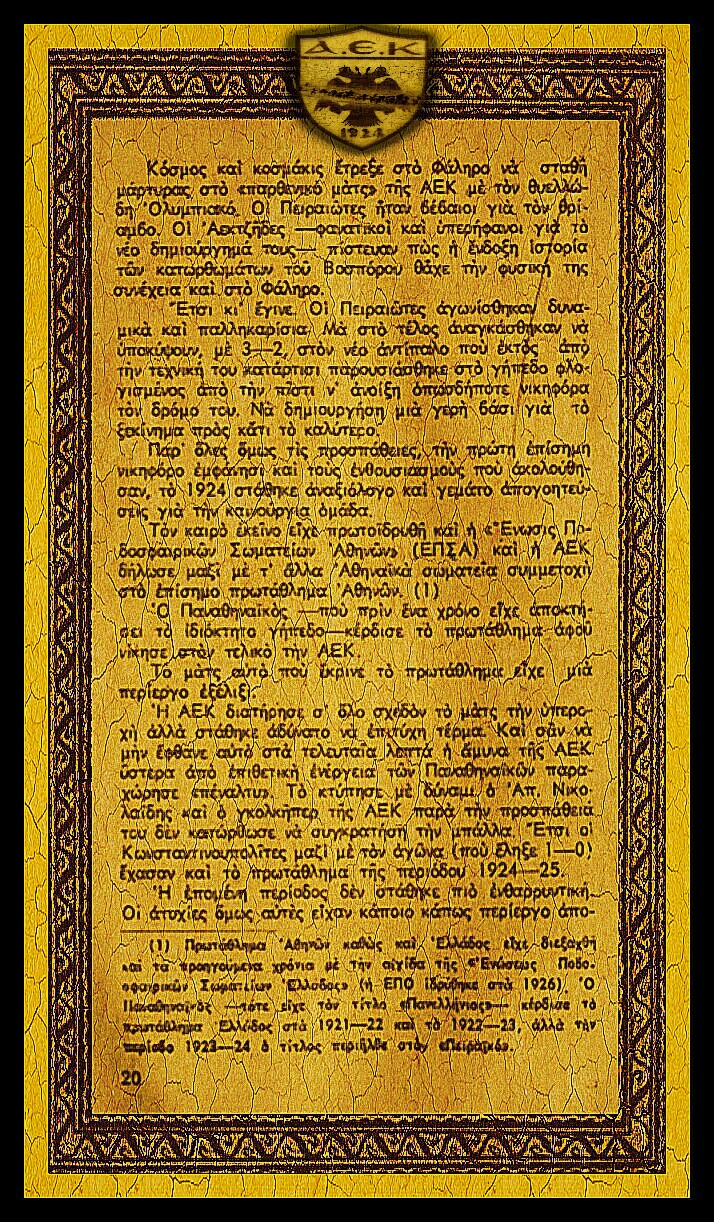 Α.Ε.Κ
1924
Κόσμος καὶ κοσμάκις ἔτρεξε στὸ Φάληρο νὰ σταθῆ
μάρτυρας στὸ «παρθενικὸ μὰτς» τῆς ΑΕΚ μὲ τὸν θυελλώ-
δη Ὀλυμπιακό. Οἱ Πειραιῶτες ἦταν βέβαιοι γιὰ τὸν θρί-
αμβο. Οἱ Ἀεκτζῆδες —φανατικοὶ καὶ ὑπερήφανοι γιὰ τὸ
νέο δημιούργημά τους— πίστευαν πὼς ἡ ἔνδοξη ἱστορία
τῶν κατορθωμάτων τοῦ Βοσπόρου θἄχε τὴν φυσική της
συνέχεια καὶ στὸ Φάληρο.
Ἔτσι κι' ἔγινε. Οἱ Πειραιῶτες ἀγωνίσθηκαν δυνα-
μικὰ καὶ παλληκαρίσια. Μὰ στὸ τέλος ἀναγκάσθηκαν νὰ
ὑποκύψουν, μὲ 3—2, στὸν νέο ἀντίπαλο ποὺ ἐκτὸς ἀπὸ
τὴν τεχνική του κατάρτισι παρουσιάσθηκε στὸ γήπεδο φλο-
γισμένος ἀπὸ τὴν πίστι ν' ἀνοίξη ὁπωσδήποτε νικηφόρα
τὸν δρόμο του. Νὰ δημιουργήση μιὰ γερὴ βάσι γιὰ τὸ
ξεκίνημα πρὸς κάτι τὸ καλύτερο.
Παρ' ὅλες ὅμως τὶς προσπάθειες, τὴν πρώτη ἐπίσημη
νικηφόρο ἐμφάνησι καὶ τοὺς ἐνθουσιασμοὺς ποὺ ἀκολούθη-
σαν, τὸ 1924 στάθηκε ἀναξιόλογο καὶ γεμάτο ἀπογοητεύ-
σεις γιὰ τὴν καινούργια ὁμάδα.
Τὸν καιρὸ ἐκεῖνο εἶχε πρωτοϊδρυθῆ καὶ ἡ «Ἕνωσις Πο-
δοσφαιρικῶν Σωματείων Ἀθηνῶν» (ΕΠΣΑ) καὶ ἡ ΑΕΚ
δήλωσε μαζὶ μὲ τ' ἄλλα Ἀθηναϊκὰ σωματεῖα συμμετοχὴ
στὸ ἐπίσημο πρωτάθλημα Ἀθηνῶν. (1)
Ὁ Παναθηναϊκὸς —ποὺ πρὶν ἕνα χρόνο εἶχε ἀποκτή-
σει τὸ ἰδιόκτητο γήπεδο—κέρδισε τὸ πρωτάθλημα ἀφοῦ
νίκησε στὸν τελικὸ τὴν ΑΕΚ.
Τὸ μὰτς αὐτὸ ποὺ ἔκρινε τὸ πρωτάθλημα εἶχε μιὰ
περίεργο ἐξέλιξι:
Ἡ ΑΕΚ διατήρησε σ' ὅλο σχεδὸν τὸ μὰτς τὴν ὑπερο-
χὴ ἀλλὰ στάθηκε ἀδύνατο νὰ ἐπιτύχη τέρμα. Καὶ σὰν νὰ
μὴν ἔφθανε αὐτὸ στὰ τελευταῖα λεπτὰ ἡ ἄμυνα τῆς ΑΕΚ
ὕστερα ἀπὸ ἐπιθετικὴ ἐνέργεια τῶν Παναθηναϊκῶν παρα-
χώρησε «πέναλτυ». Τὸ κτύπησε μὲ δύναμι ὁ Ἀπ. Νικο-
λαΐδης καὶ ὁ γκολκήπερ τῆς ΑΕΚ παρὰ τὴν προσπάθειά
του δὲν κατώρθωσε νὰ συγκρατήση τὴν μπάλλα. Ἔτσι οἱ
Κωνσταντινουπολῖτες μαζὶ μὲ τὸν ἀγῶνα (ποὺ ἔληξε 1—0)
ἔχασαν καὶ τὸ πρωτάθλημα τῆς περιόδου 1924—25.
Ἡ ἑπομένη περίοδος δὲν στάθηκε πιὸ ἐνθαρρυντική.
Οἱ ἀτυχίες ὅμως αὐτὲς εἶχαν κάποιο κάπως περίεργο ἀπο-
(1) Πρωτάθλημα Ἀθηνῶν καθὼς καὶ Ἑλλάδος εἶχε διεξαχθῆ
καὶ τὰ προηγούμενα χρόνια μὲ τὴν αἰγίδα τῆς «Ἑνώσεως Ποδο-
σφαιρικῶν Σωματείων Ἑλλάδος» (ἡ ΕΠΟ ἱδρύθηκε στὰ 1926). Ὁ
Παναθηναϊκὸς —τότε εἶχε τὸν τίτλο «Πανελλήνιος»— κέρδισε τὸ
πρωτάθλημα Ἑλλάδος στὰ 1921—22 καὶ τὸ 1922—23, ἀλλὰ τὴν
περίοδο 1923—24 ὁ τίτλος περιῆλθε στὸν «Πειραϊκό».
20